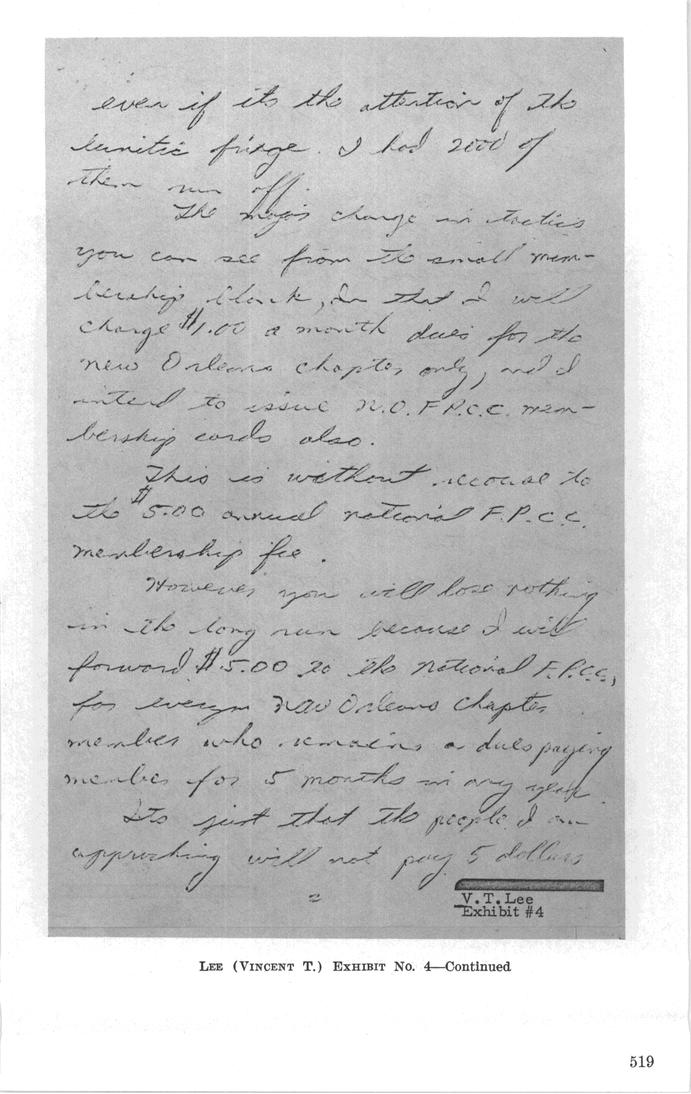 even if its the attention of the
lunitic fringe. I had 2000 of
them run off.
The major change in tactics
you can see from the small mem-
bership blank, in that I will
charge $1.00 a month dues for the
new Orleans chapter only, and I
intend to issue N.O. F.P.C.C. mem-
bership cards also.
This is without recouse to
the $5.00 annual national F.P.C.C.
membership fee.
However you will lose nothing
in the long run because I will
forward $5.00 to the National F.P.C.C.,
for everyn New Orleans Chapter
member who remains a dues paying
member for 5 months in any year.
Its just that the people I am
approching will not pay 5 dollars
V.T.Lee
Exhibit #4
LEE (VINCENT T.) EXHIBIT NO. 4—Continued
519